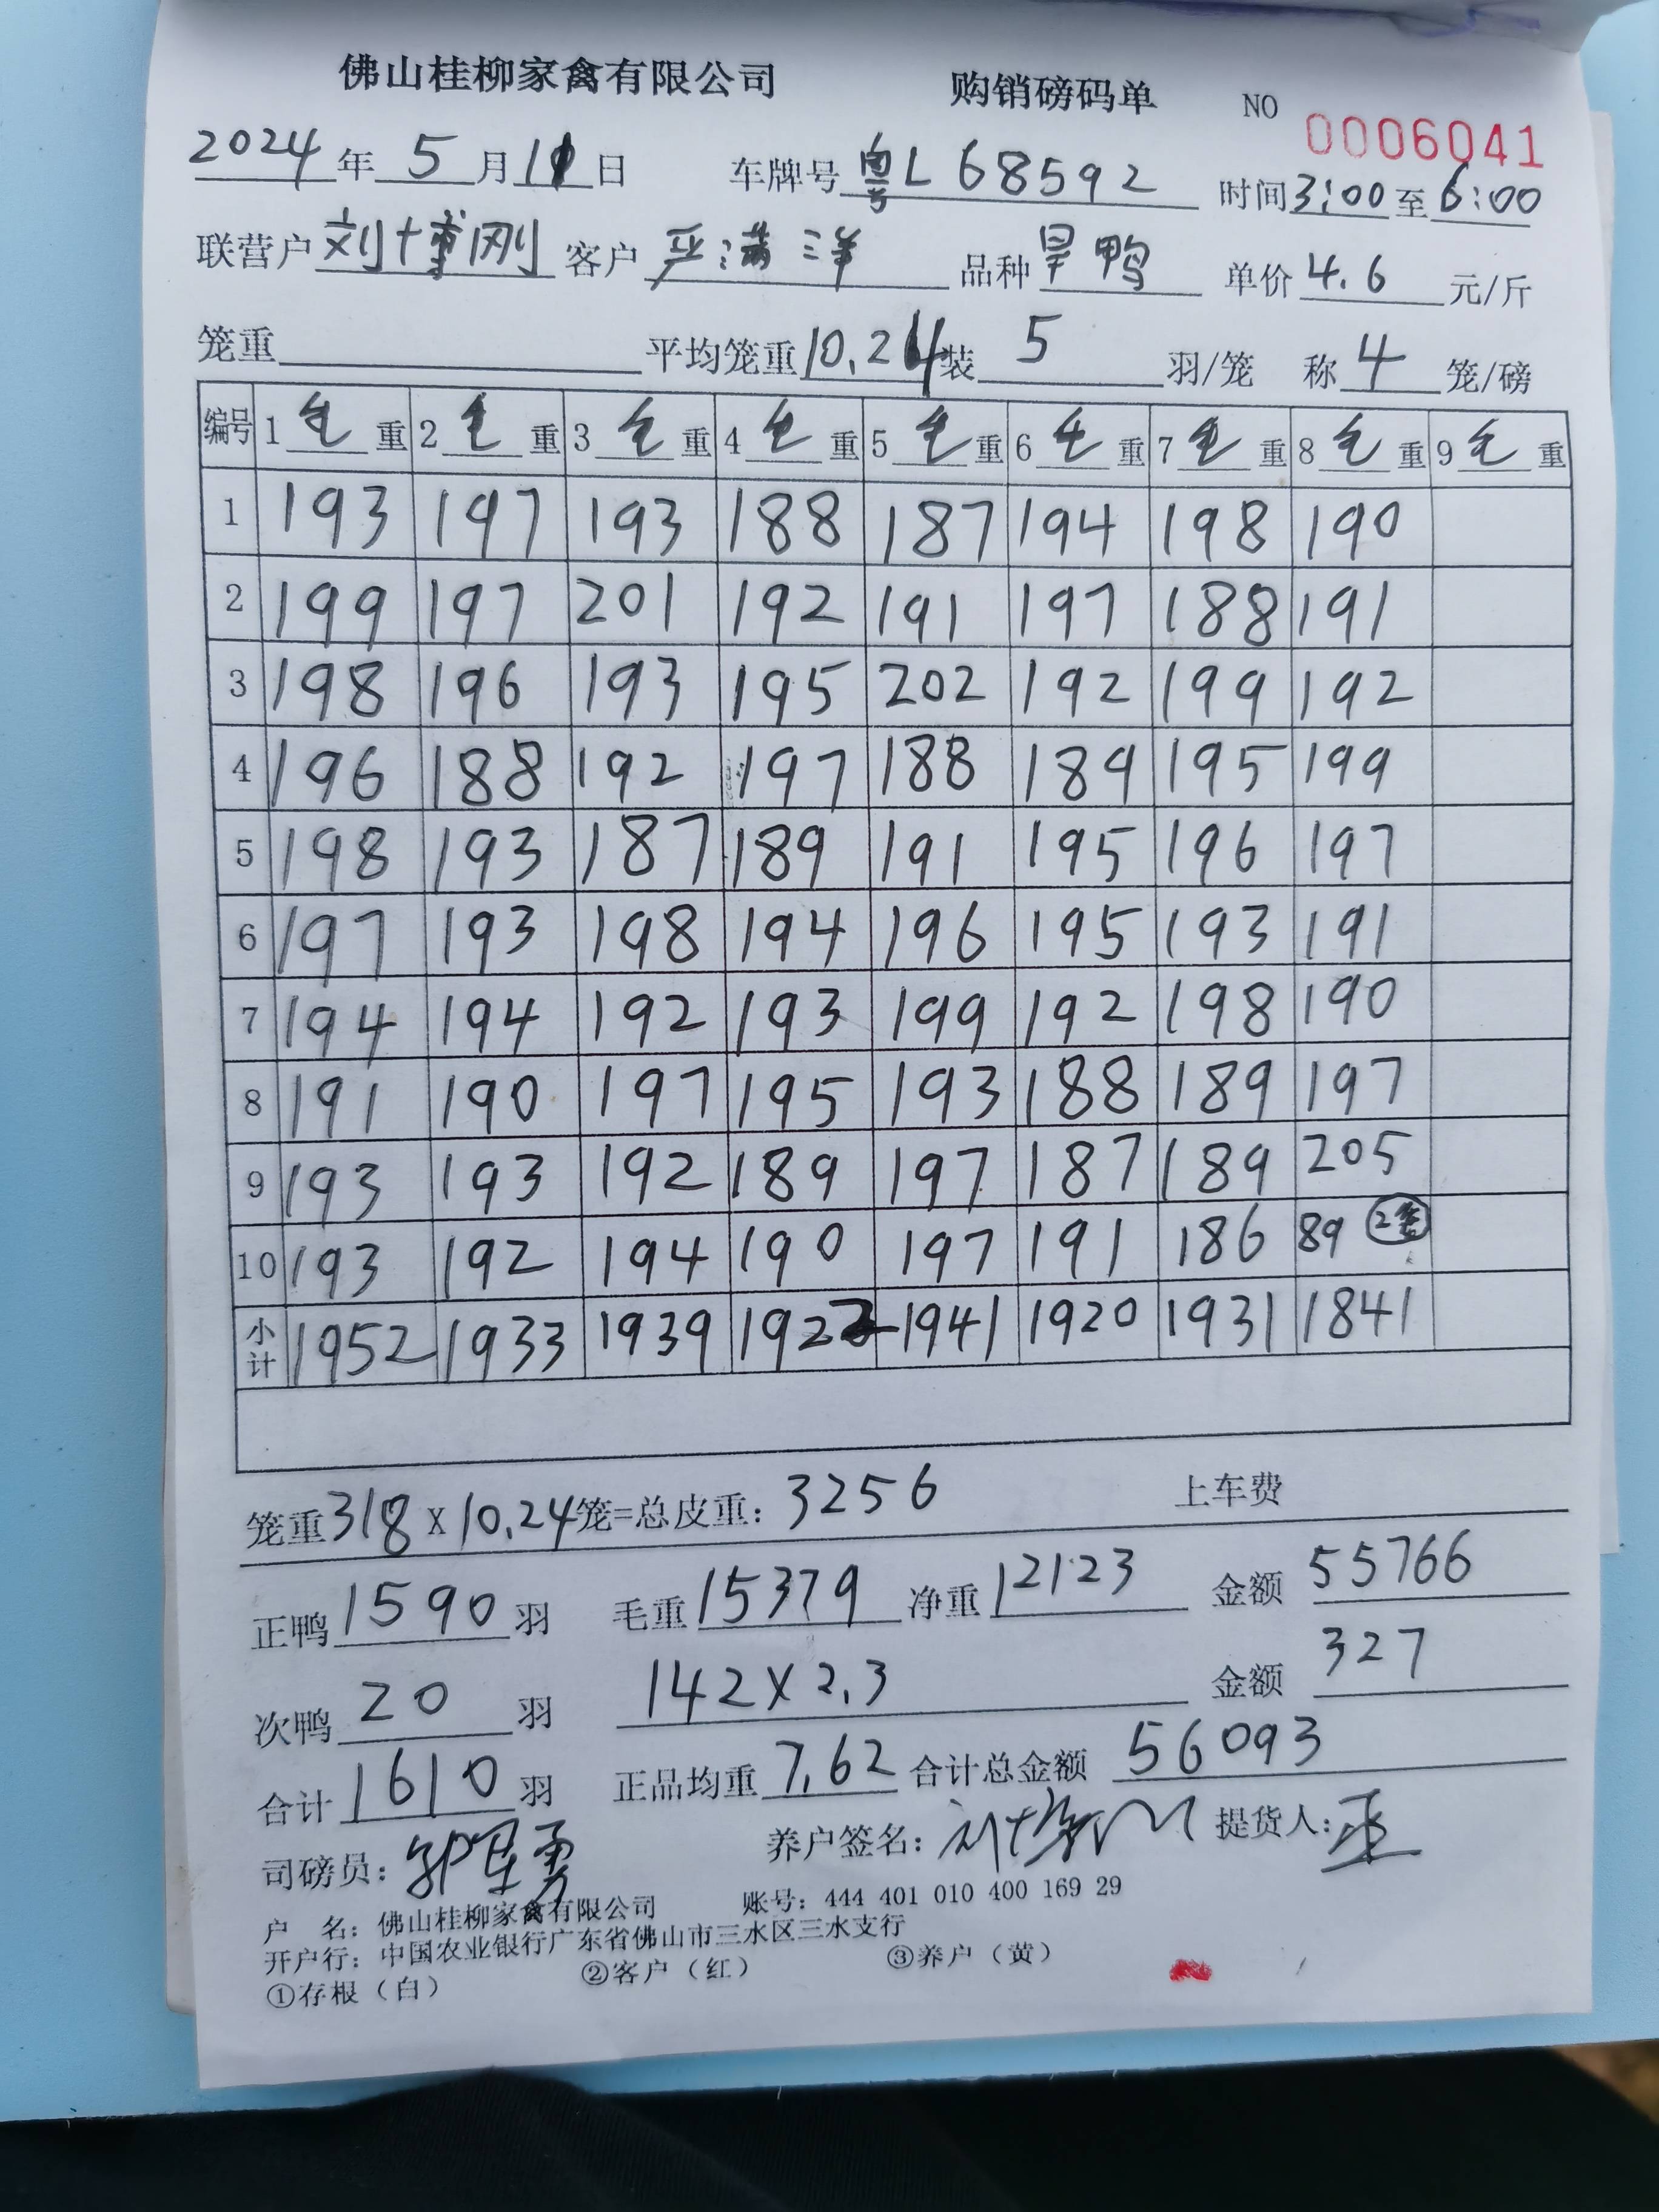 佛山桂柳家禽有限公司 购销磅码单 NO 0006041
2024年 5月 11日 车牌号 粤L 68592 时间 3:00 至 6:00
联营户 刘博刚 客户 严满洋 品种 旱鸭 单价 4.6 元/斤
笼重 平均笼重 10.24 装 5 羽/笼 称 4 笼/磅
编号 1 毛 重 2 毛 重 3 毛 重 4 毛 重 5 毛 重 6 毛 重 7 毛 重 8 毛 重 9 毛 重
1 193 197 193 188 187 194 198 190
2 199 197 201 192 191 197 188 191
3 198 196 193 195 202 192 199 192
4 196 188 192 197 188 189 195 199
5 198 193 187 189 191 195 196 197
6 197 193 198 194 196 195 193 191
7 194 194 192 193 199 192 198 190
8 191 190 197 195 193 188 189 197
9 193 193 192 189 197 187 189 205
10 193 192 194 190 197 191 186 89 2笼
小计 1952 1933 1939 1922 1941 1920 1931 1841
笼重 318 X 10.24 笼=总皮重: 3256 上车费
正鸭 1590 羽 毛重 15379 净重 12123 金额 55766
次鸭 20 羽 142 X 2.3 金额 327
合计 1610 羽 正品均重 7.62 合计总金额 56093
司磅员: 养户签名: 提货人:
户 名: 佛山桂柳家禽有限公司 账号: 444 401 010 400 169 29
开户行: 中国农业银行广东省佛山市三水区三水支行
①存根（白） ②客户（红） ③养户（黄）